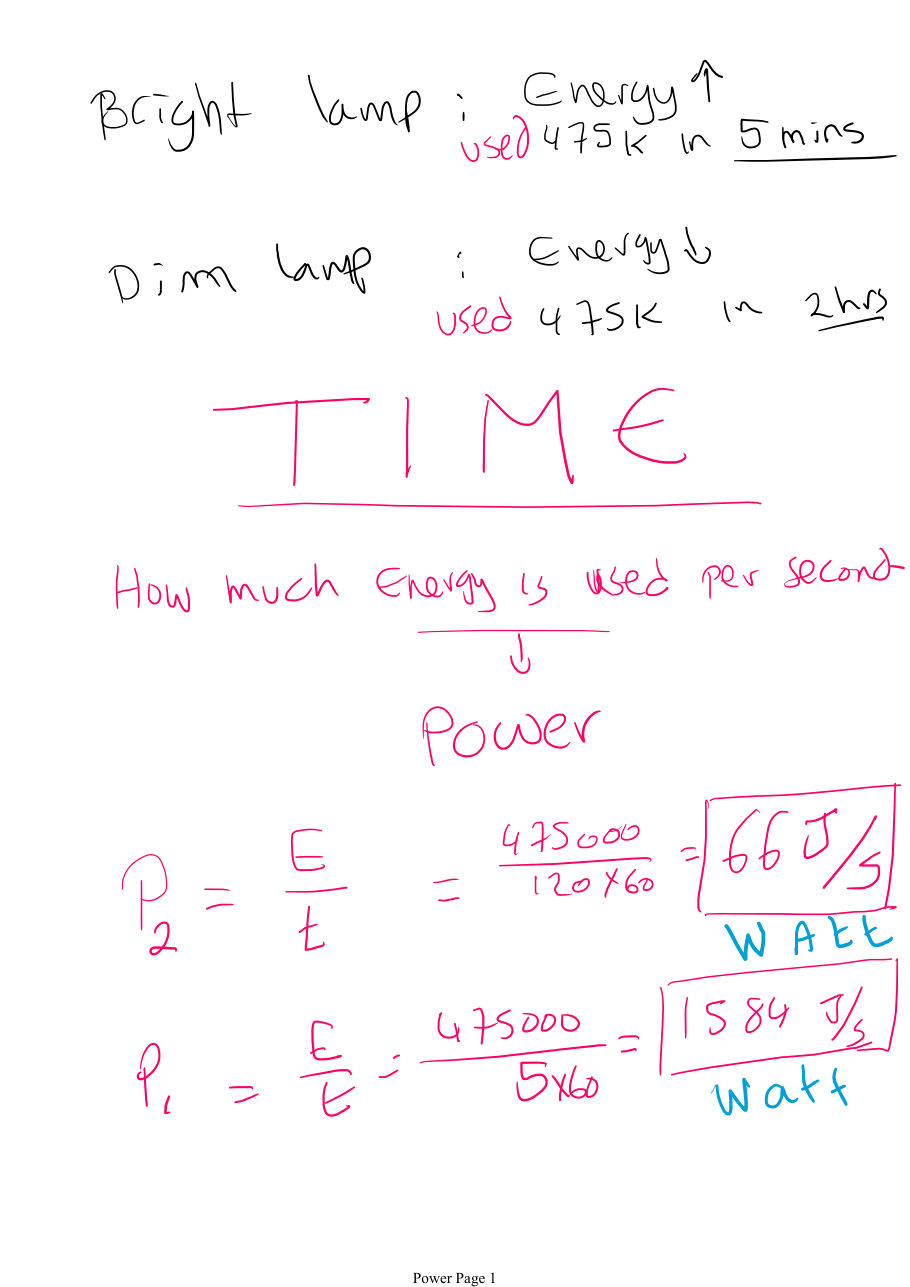 Bright lamp : Energy ↑
used 475K in 5 mins
Dim lamp : Energy ↓
used 475K in 2hrs
TIME
How much Energy is used per second
↓
Power
P₂ = E/t = 475000/120×60 = 66 J/s
WAtt
P₁ = E/t = 475000/5×60 = 1584 J/s
Watt
Power Page 1